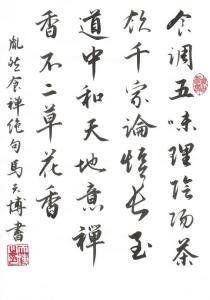 食调五味理阴阳茶
饮千家论悟长玉
道中和天地意禅
香不二草花香
胤然食禅绝句馬天博書